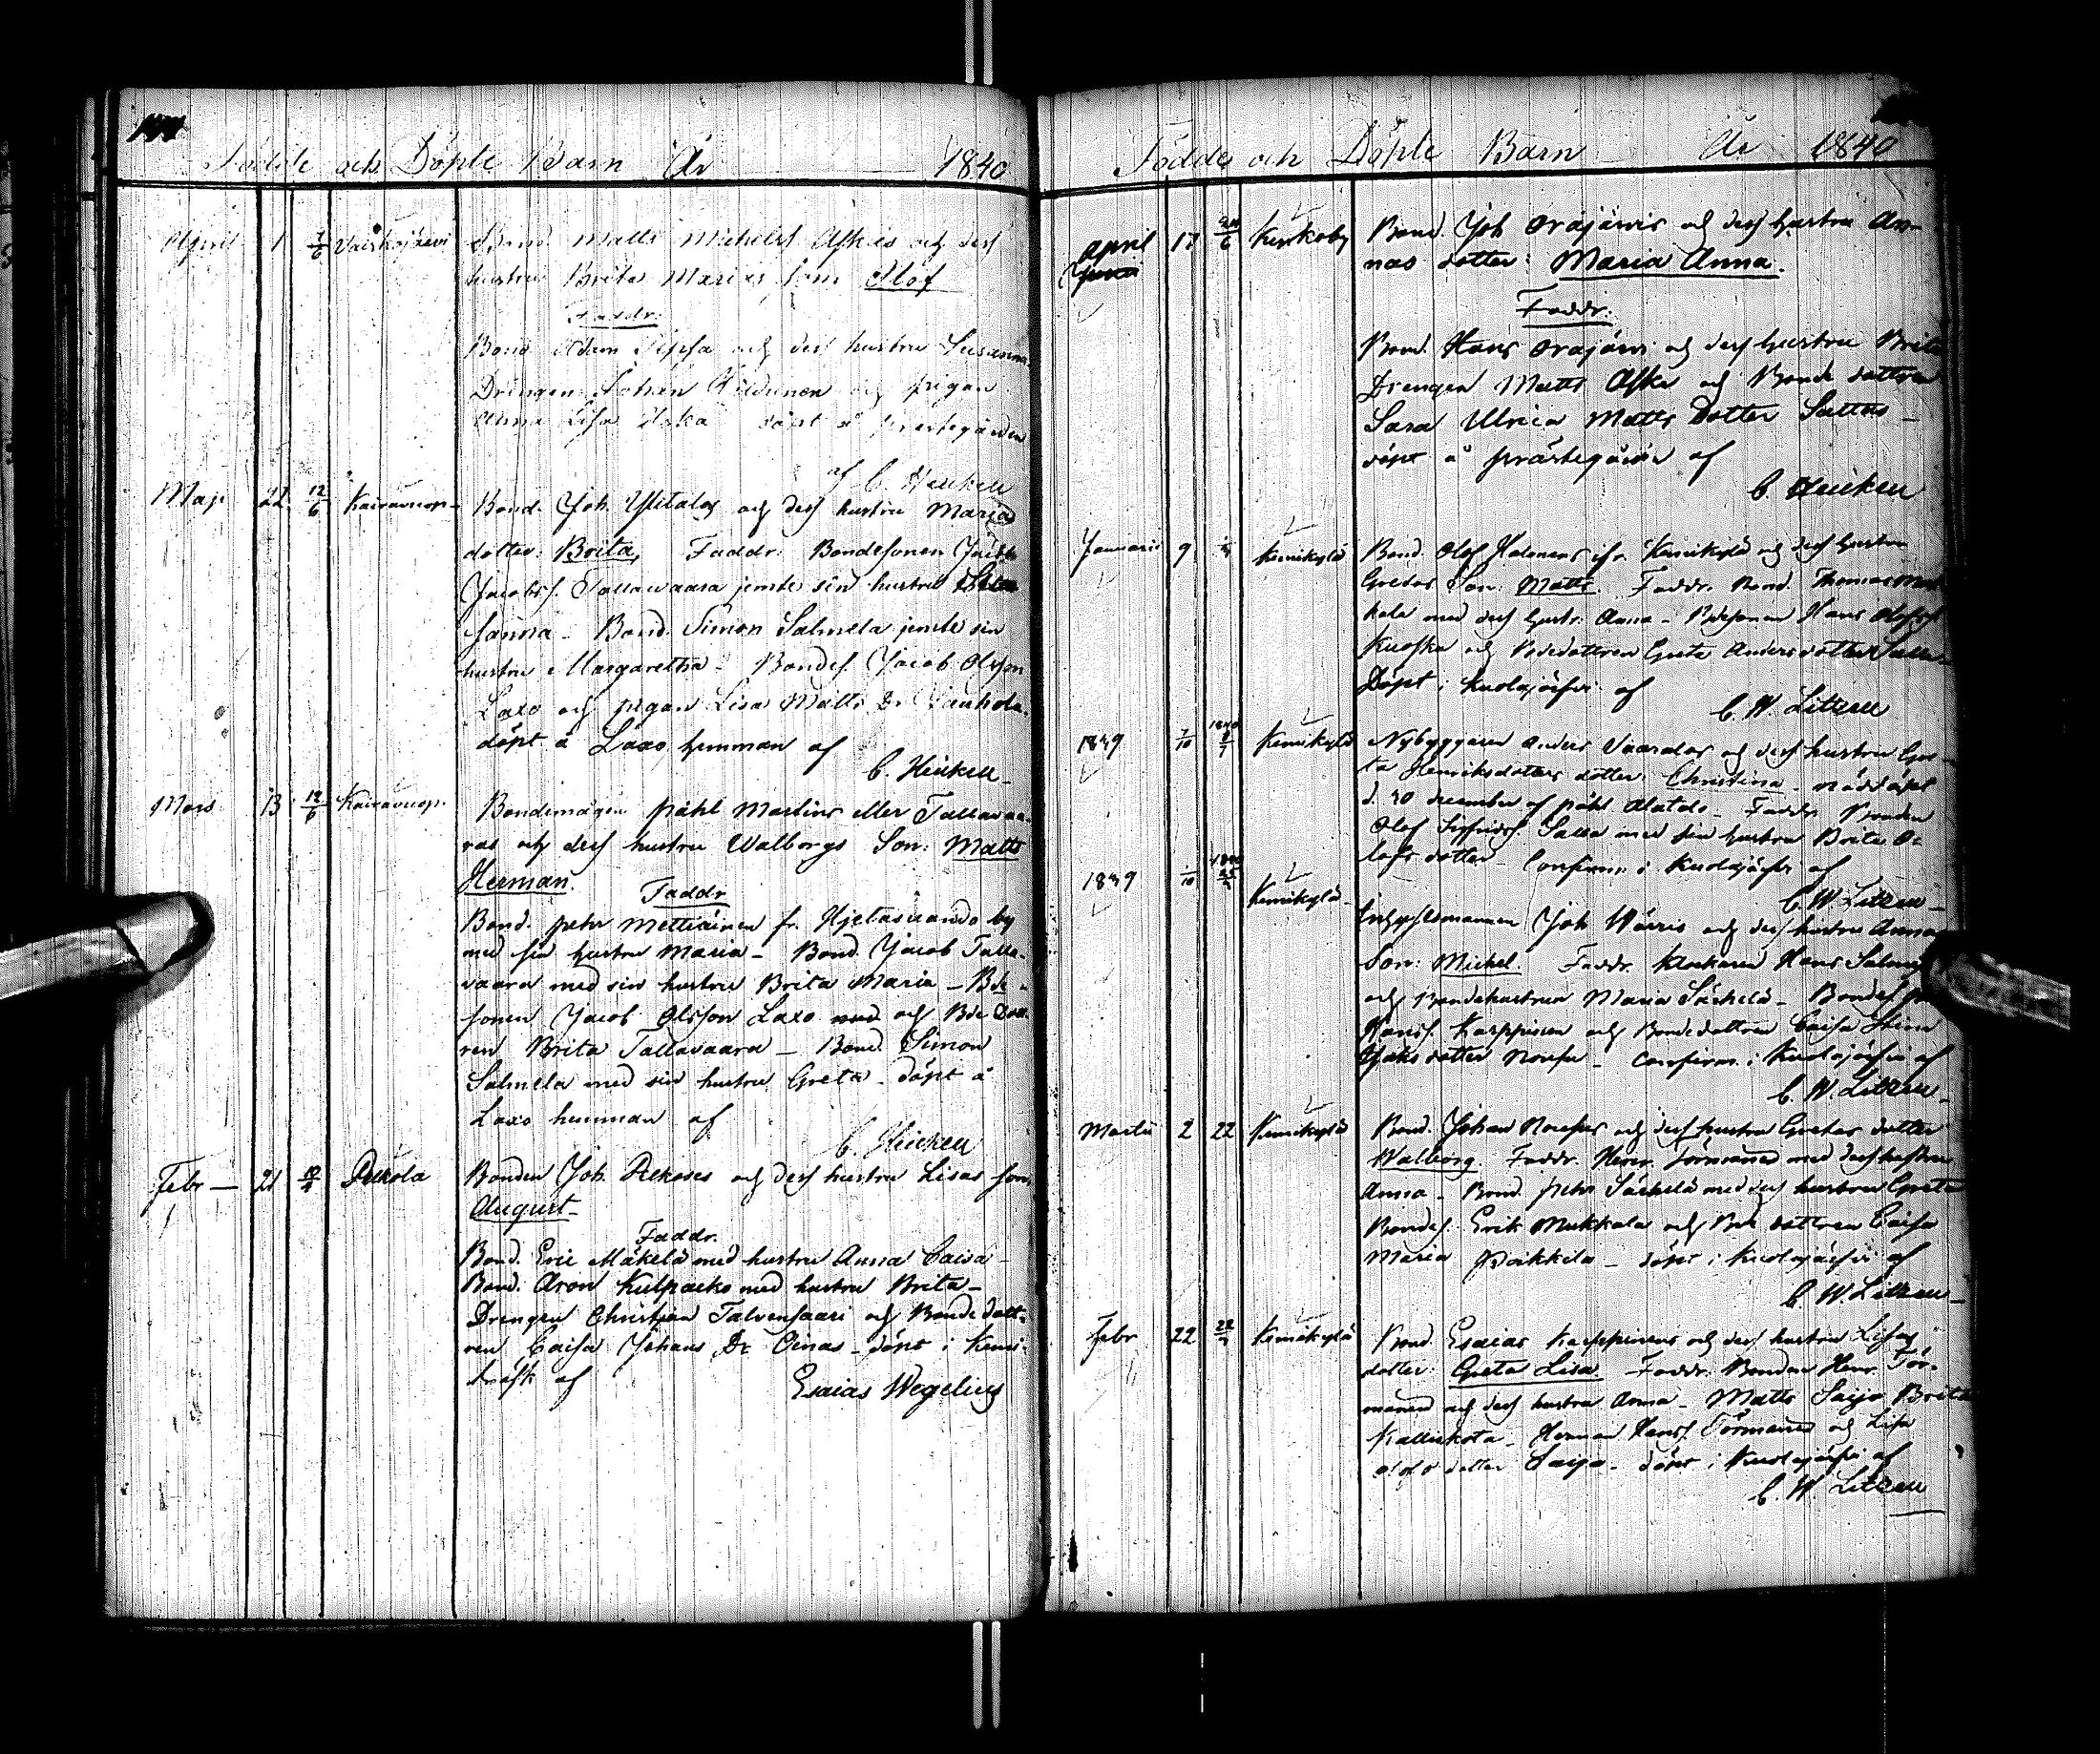 Födde och Döpte Barn År 1840
April 1 7/6 Vaiskojärvi Bond. Matts Michelss. Askas och dess
hustru Brita Marias son Olof
Faddr:
Bond. Adam och dess hustru Susanna
Drengen Johan och pigan
Anna Lisa Aska döpt å prestegården
af C. Heickell
Maji 22 12/6 Kairavuop. Bond. Joh. Ylitalos och dess hustru Maria
dotter: Brita, Faddr: Bondesonen Jacob
Jacobs. Tallavaara jemte sin hustru
sanna – Bond. Simon Salmela jemte sin
hustru Margaretha – Bondes. Jacob Olsson
Laxo och pigan Lisa Matts Dr Vanhola
döpt å Laxo hemman af
C. Heickell –
Mars 13 12/6 Kairavuop. Bondemågen Påhl Martins eller Tallavaa-
ras och dess hustru Walborgs Son: Matts
Herman.
Faddr
Bond. Petr Mettiäinen fr. Hjetasuando by
med sin hustru Maria – Bond. Jacob Talla-
vaara med sin hustru Brita Maria – Bde-
sonen Jacob Olsson Laxo och Bde Dott-
ren Brita Tallavaara – Bond. Simon
Salmela med sin hustru Greta – döpt å
Laxo hemman af
C. Heickell
Febr – 21 Pelkola Bonden Joh. och dess hustru Lisas son,
August –
Faddr.
Bond. Eric Mäkelä med hustru Anna Caisa –
Bond. Aron Kulpacko med hustru Brita –
Drengen Christian Talvensaari och Bonde dott-
ren Caisa Johans Dr Oinas – döpt i Kemi-
träsk af
Esaias Wegelius
Födde och Döpte Barn År 1840
April 17 Kyrkoby Bond. Joh Orajärvis och dess hustru An-
nas dotter: Maria Anna.
Faddr.
Bond. Hans Orajärvi och dess hustru Brita
Drengen Matts Aska och Bonde dottren
Sara Ulrica Matts Dotter Sattus –
döpt å prästegården af
C. Heickell
Januarii 9 Kemikylä Bond. Olof Halonens ifr. Kemikylä och dess hustru
Gretas Son: Matts. Faddr. Bond. Thomas
kala med dess hustr. Anna – Bdesonen Hans Olofss.
Kuoska och Bdedottren Greta Anders dotter Salla –
Döpt i Kuolajärfvi af
C. W. Litzell
1839 7/10 1840 Kemikylä Nybyggaren Anders Vaaralas och dess hustru Gre-
ta Henriksdotters dotter: Christina – nöddöpt
d. 30 december af Påhl Alatalo – Faddr. Bonden
Olof Sigfridss. Salla med sin hustru Brita O-
lofs dotter – Confirm. i Kuolajärfvi af
C. W. Litzell –
1839 1/10 1840 Kemikylä Inhysesmannen Joh Wärris och dess hustru Annas
Son: Michel. Faddr. Klockaren Hans
och Bondehustrun Maria Särkelä – Bondes.
Hanss. Karppinen och Bondedottren Caisa Stina
Johs dotter – Confirm. i Kuolajärfvi af
C. W. Litzell –
Martii 2 22 Kemikylä Bond. Johan och dess hustru Gretas dotter
Walborg Faddr. Henr. Törmänen med dess hustru
Anna – Bond. Petr Särkelä med dess hustru Greta
Bondes. Erik Mukkala och Bde dottren Caisa
Maria – döpt i Kuolajärfvi af
C. W. Litzell –
Febr 22 Kemikylä Bond. Esaias Karppinens och dess hustru Lisas
dotter: Greta Lisa. Faddr. Bonden Henr. Tör-
mänen och dess hustru Anna – Matts Saija Brita
Kallunkota – Herman Hanss. Törmänen och Lisa
Olofs dotter Saija – döpt i Kuolajärfvi af
C. W. Litzell